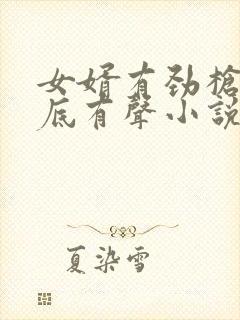 女婿有勁槍
底有聲小說
夏染雪